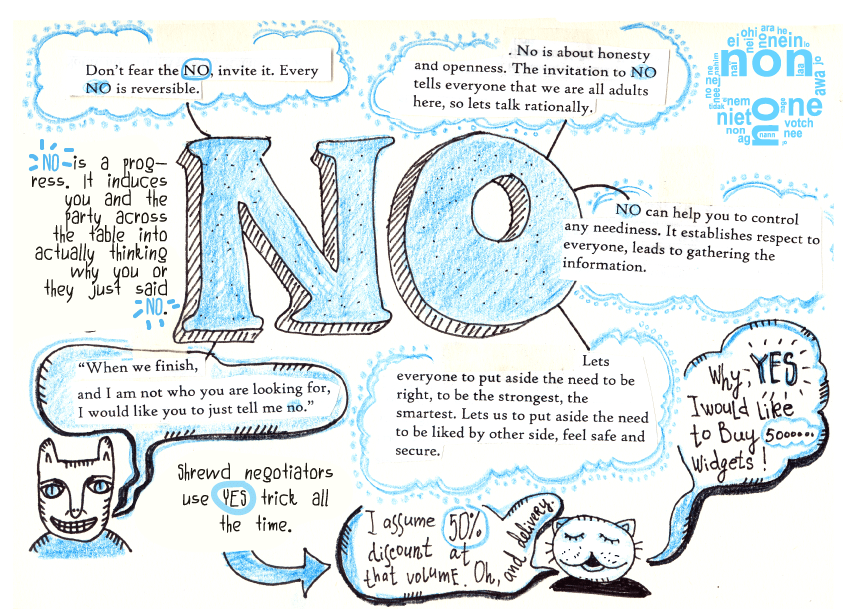 Don't fear the NO, invite it. Every
NO is reversible.
. No is about honesty
and openness. The invitation to NO
tells everyone that we are all adults
here, so lets talk rationally.
ara he
ohi
ei
nei
no
nein
non
nai
laa
jo
awa
ne
no
nee
nem
niet
non
ag
no
one
votch
nee
NO is a prog-
ress. It induces
you and the
party across
the table into
actually thinking
why you or
they just said
NO.
NO
NO can help you to control
any neediness. It establishes respect to
everyone, leads to gathering the
information.
"When we finish,
and I am not who you are looking for,
I would like you to just tell me no."
Lets
everyone to put aside the need to be
right, to be the strongest, the
smartest. Lets us to put aside the need
to be liked by other side, feel safe and
secure.
Why, YES
I would Like
to Buy 5000....
Widgets!
Shrewd negotiators
use YES trick all
the time.
I assume 50%
discount at
that volume. Oh, and delivery.